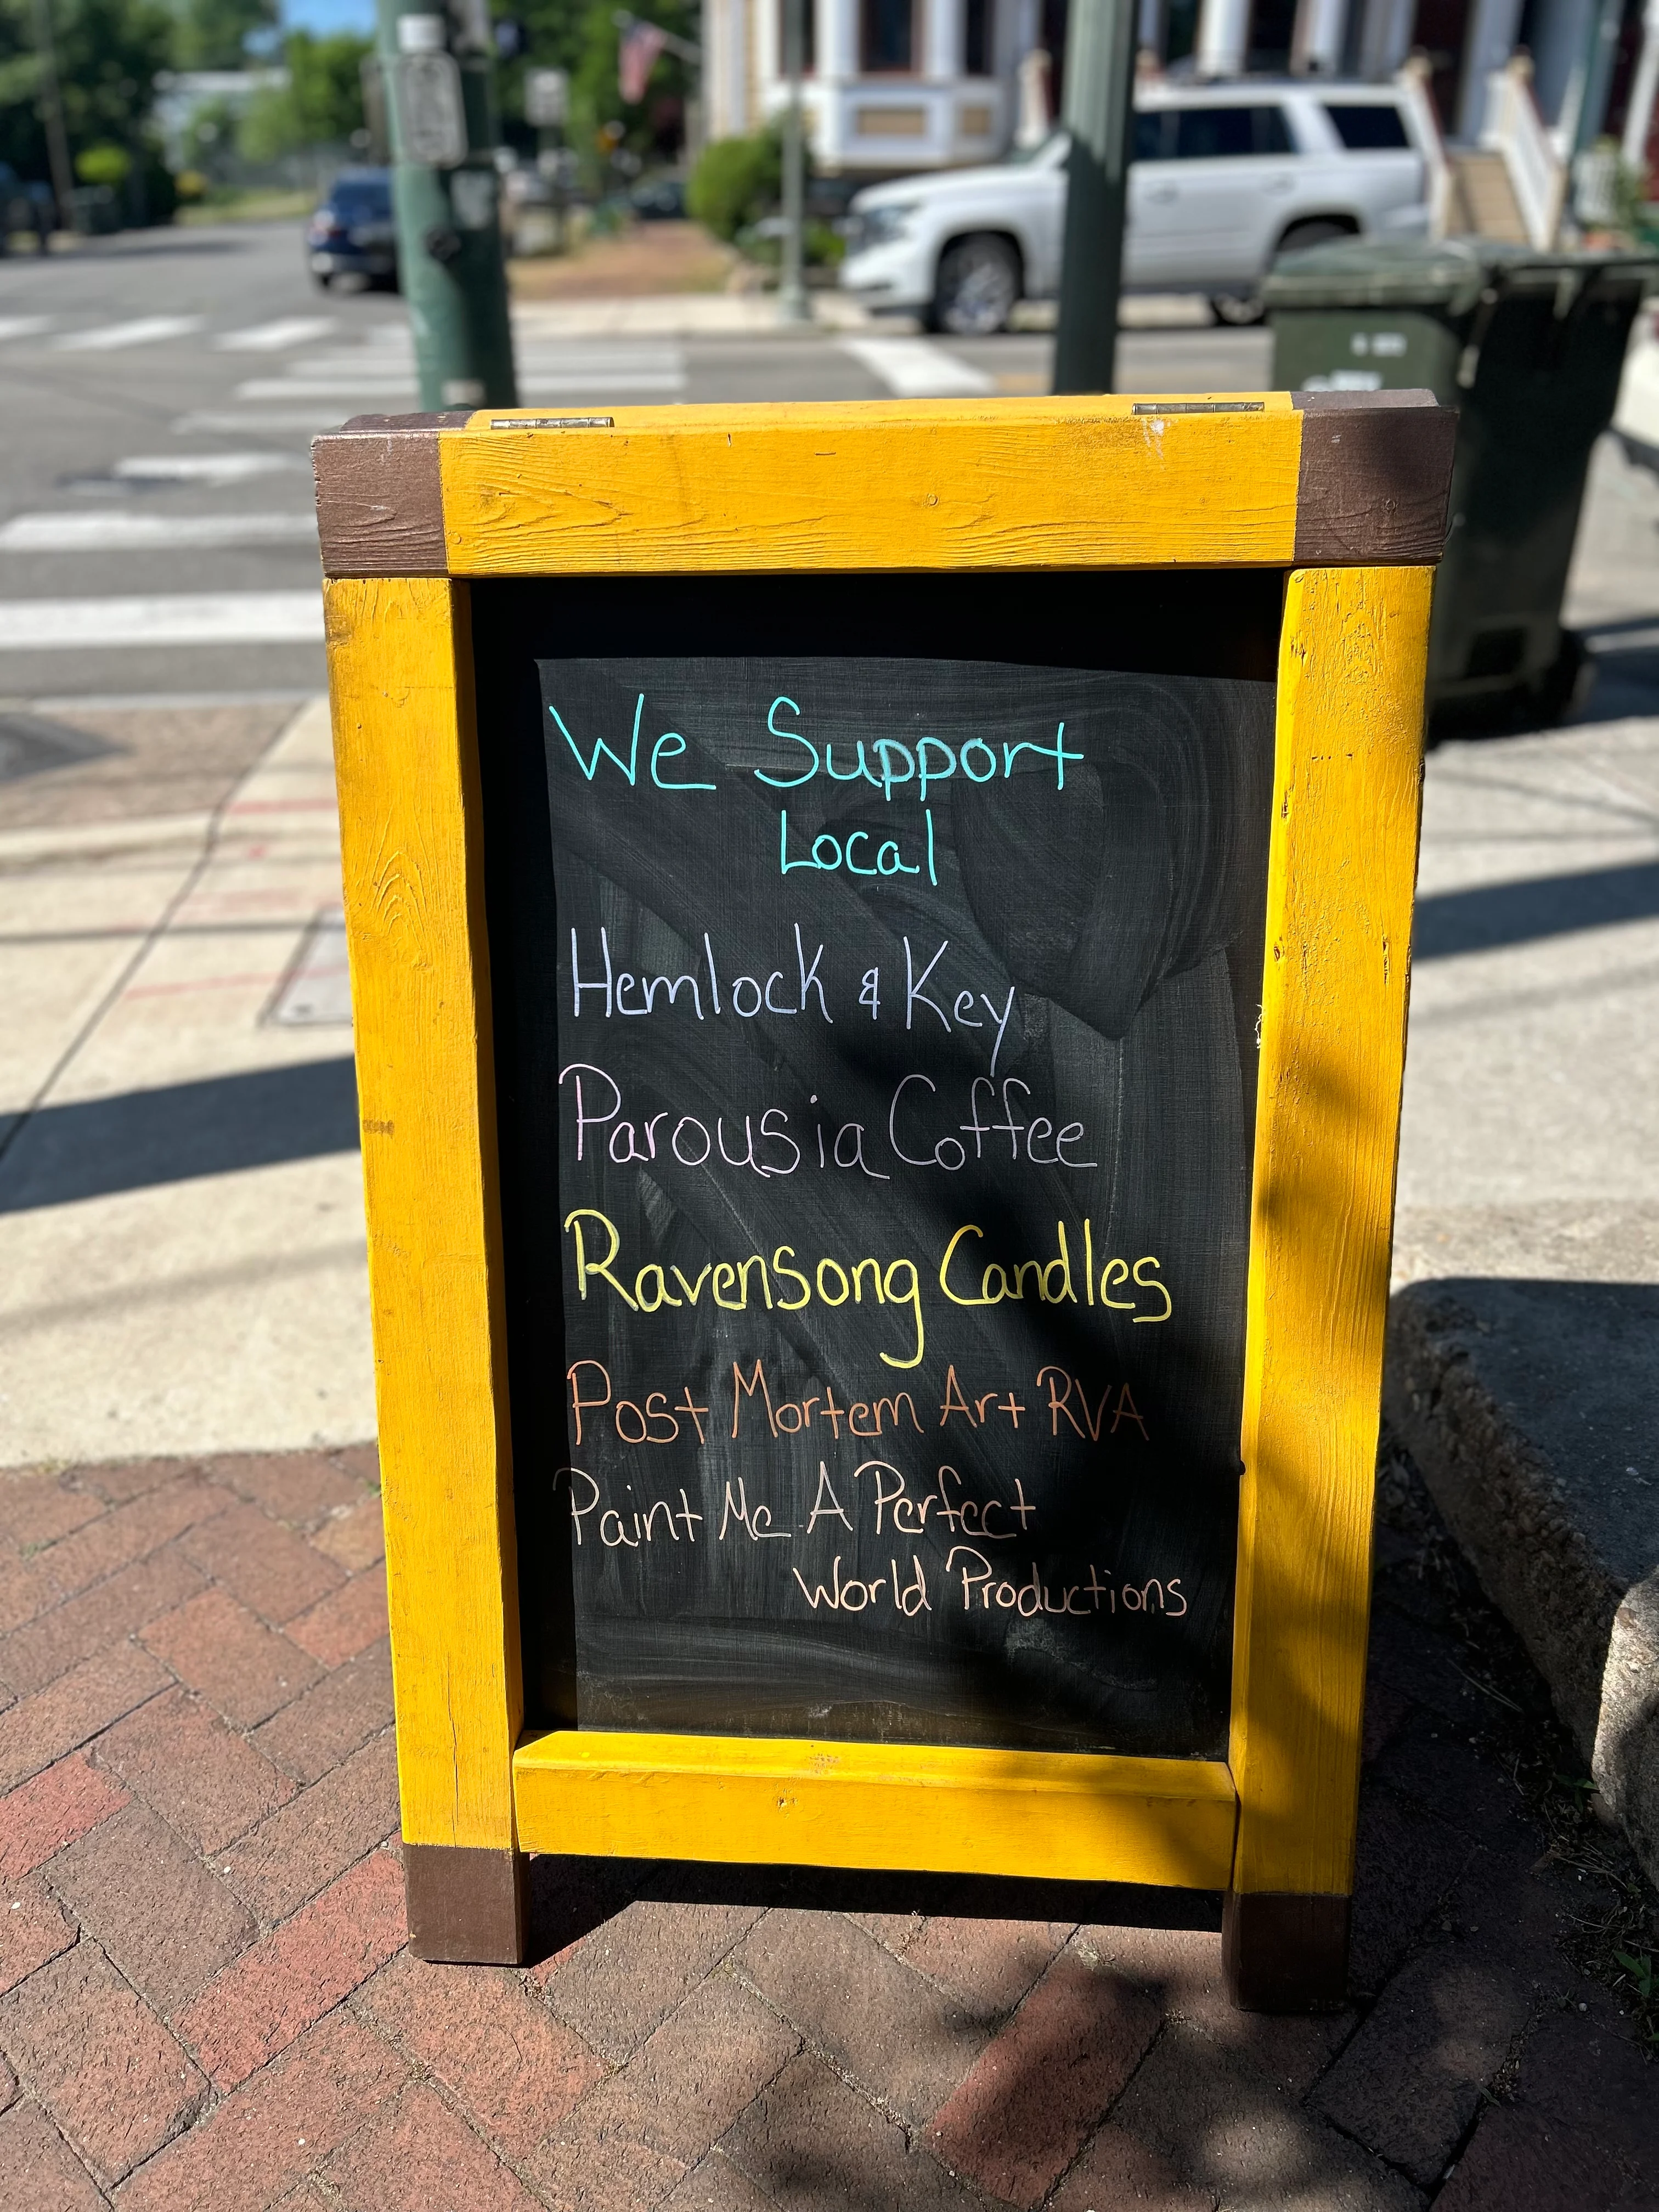 We Support
Local
Hemlock & Key
Parousia Coffee
Ravensong Candles
Post Mortem Art RVA
Paint Me A Perfect
World Productions